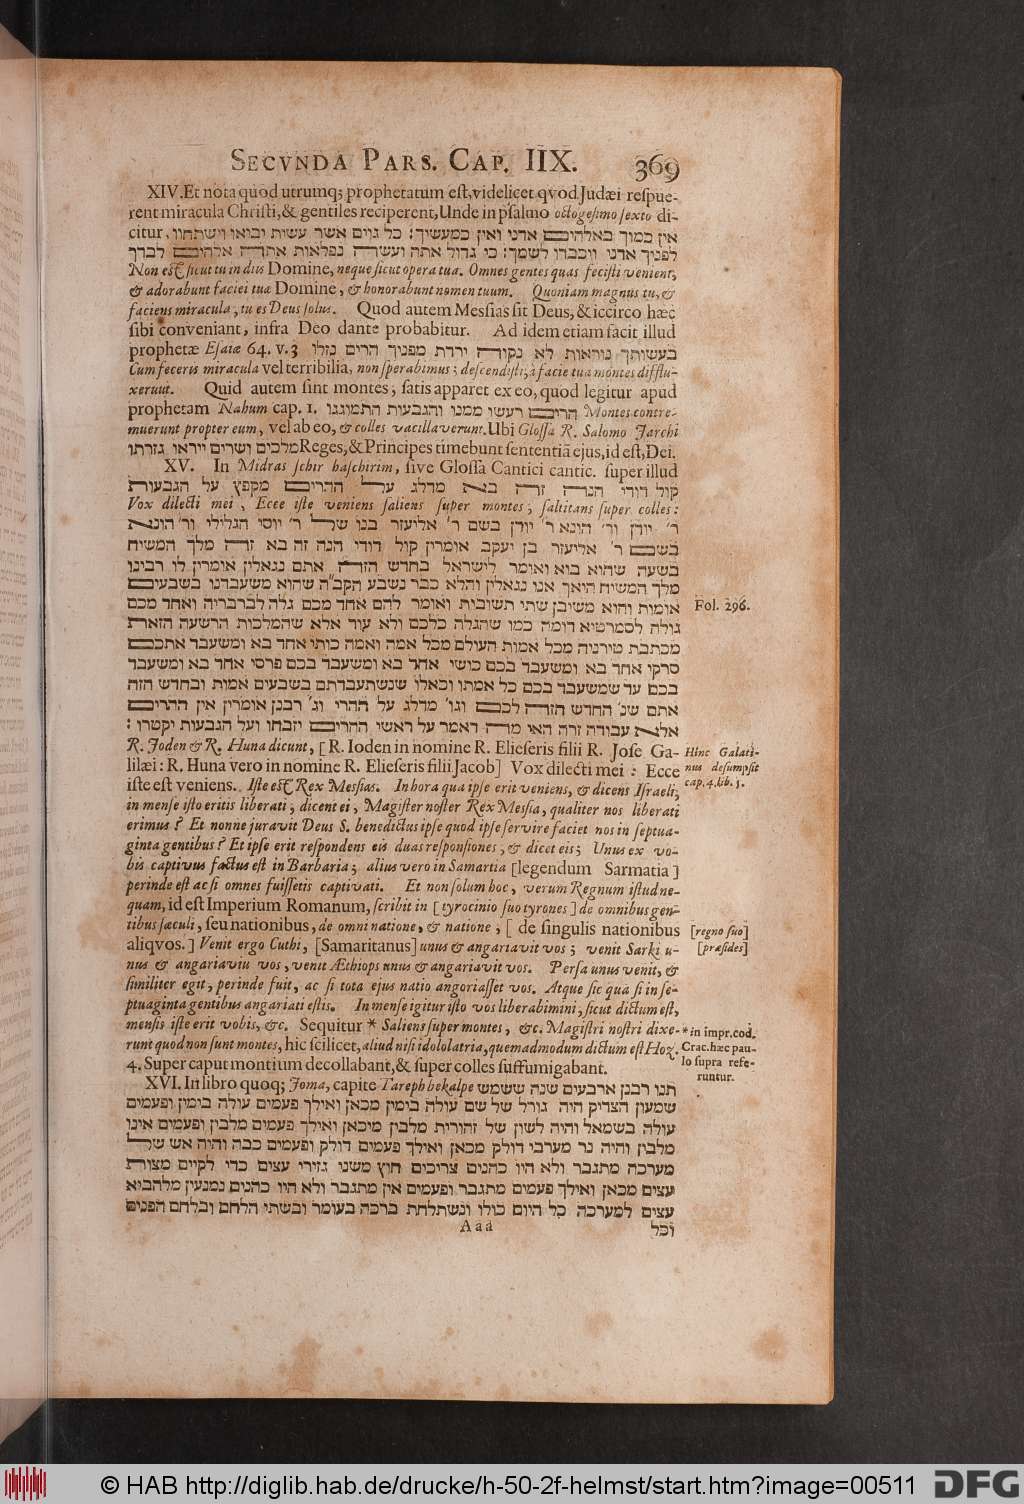 SECVNDA PARS. CAP. IIX. 369
XIV. Et nota quod utrumq; prophetatum est, videlicet qvod Judæi respue-
rent miracula Christi, & gentiles reciperent, Unde in psalmo octogesimo sexto di-
citur. אין כמוך באלהים אדני ואין כמעשיך: כל גוים אשר עשית יבואו וישתחוו
לפניך אדני ויכברו לשמך: כי גדול אתה ועשה נפלאות אתה אלהים לבדך
Non est sicut tu in diis Domine, neque sicut opera tua. Omnes gentes quas fecisti venient,
& adorabunt faciei tuæ Domine, & honorabunt nomen tuum. Quoniam magnus tu, &
faciens miracula, tu es Deus solus. Quod autem Messias sit Deus, & iccirco hæc
sibi conveniant, infra Deo dante probabitur. Ad idem etiam facit illud
prophetæ Esaiæ 64. v. 3 בעשותך נוראות לא נקוה ירדת מפניך הרים נזלו
Cum feceris miracula vel terribilia, non sperabimus; descendisti, à facie tua montes difflu-
xerunt. Quid autem sint montes, satis apparet ex eo, quod legitur apud
prophetam Nahum cap. 1. הרים רעשו ממנו והגבעות התמוגגו Montes contre-
muerunt propter eum, vel ab eo, & colles vacillaverunt. Ubi Glossa R. Salomo Jarchi
מלכים ושרים ייראו גזרתו Reges, & Principes timebunt sententiã ejus, id est, Dei.
XV. In Midras schir haschirim, sive Glossa Cantici cantic. super illud
קול דודי הנה זה בא מדלג על ההרים מקפץ על הגבעות
Vox dilecti mei, Ecce iste veniens saliens super montes, saltitans super colles:
ר׳ יודן ור׳ הונא ר׳ יודן בשם ר׳ אליעזר בנו של ר׳ יוסי הגלילי ור׳ הונא
בשם ר׳ אליעזר בן יעקב אומרין קול דודי הנה זה בא זה מלך המשיח
בשעה שהוא בוא ואומר לישראל בחדש הזה אתם נגאלין אומרין לו רבינו
מלך המשיח היאך אנו נגאלין והלא כבר נשבע הקב״ה שהוא משעבדנו בשבעים
אומות והוא משיבן שתי תשובות ואומר להם אחד מכם גלה לברבריה ואחד מכם
Fol. 296.
גולה לסמרטיא דומה כמו שהגלה כלכם ולא עוד אלא שהמלכות הרשעה הזאת
מכתבת טירניה מכל אמות העולם מכל אמה ואמה כותי אחד בא ומשעבד אתכם
סרקי אחד בא ומשעבד בכם כושי אחד בא ומשעבד בכם פרסי אחד בא ומשעבד
בכם עד שמשעבד בכם כל אמתו וכאלו שנשתעבדתם בשבעים אמות ובחדש הזה
אתם שנ׳ החדש הזה לכם וגו׳ מדלג על ההרי וג׳ רבנן אומרין אין ההרים
אלא עבודה זרה האי מה דאמר על ראשי ההרים יזבחו ועל הגבעות יקטרו:
R. Joden & R. Huna dicunt, [R. Ioden in nomine R. Elieseris filii R. Jose Ga-
lilæi: R. Huna vero in nomine R. Elieseris filii Jacob] Vox dilecti mei: Ecce
iste est veniens. Iste est Rex Messias. In hora qua ipse erit veniens, & dicens Israeli,
Hinc Galati-
nus desumpsit
cap. 4. lib. 5.
in mense isto eritis liberati; dicent ei, Magister noster Rex Messia, qualiter nos liberati
erimus? Et nonne juravit Deus S. benedictus ipse quod ipse servire faciet nos in septua-
ginta gentibus? Et ipse erit respondens eis duas responsiones, & dicet eis; Unus ex vo-
bis captivus factus est in Barbaria; alius vero in Samartia [legendum Sarmatia]
perinde est ac si omnes fuissetis captivati. Et non solum hoc, verum Regnum istud ne-
quam, id est Imperium Romanum, scribit in [tyrocinio suo tyrones] de omnibus gen-
tibus sæculi, seu nationibus, de omni natione, & natione, [de singulis nationibus
aliqvos.] Venit ergo Cuthi, [Samaritanus] unus & angariavit vos; venit Sarki u-
[regno suo]
[præsides]
nus & angariaviu vos, venit Æthiops unus & angariavit vos. Persa unus venit, &
similiter egit, perinde fuit, ac si tota ejus natio angoriasset vos. Atque sic qua si in se-
ptuaginta gentibus angariati estis. In mense igitur isto vos liberabimini, sicut dictum est,
mensis iste erit vobis, &c. Sequitur * Saliens super montes, &c. Magistri nostri dixe-
runt quod non sunt montes, hic scilicet, aliud nisi idololatria, quemadmodum dictum est Hoz.
4. Super caput montium decollabant, & super colles suffumigabant.
* in impr. cod.
Crac. hæc pau-
lo supra refe-
runtur.
XVI. In libro quoq; Joma, capite Tareph bekalpe תנו רבנן ארבעים שנה ששמש
שמעון הצדיק היה גורל של שם עולה בימין מכאן ואילך פעמים עולה בימין ופעמים
עולה בשמאל והיה לשון של זהורית מלבין מיכאן ואילך פעמים מלבין ופעמים אינו
מלבין והיה נר מערבי דולק מכאן ואילך פעמים דולק ופעמים כבה והיה אש של
מערכה מתגבר ולא היו כהנים צריכים חוץ משני גזירי עצים כדי לקיים מצות
עצים מכאן ואילך פעמים מתגבר ופעמים אין מתגבר ולא היו כהנים נמנעין מלהביא
עצים למערכה כל היום כולו ונשתלחת ברכה בעומר ובשתי הלחם ובלחם הפנים
Aaa וכל
© HAB http://diglib.hab.de/drucke/h-50-2f-helmst/start.htm?image=00511 DFG